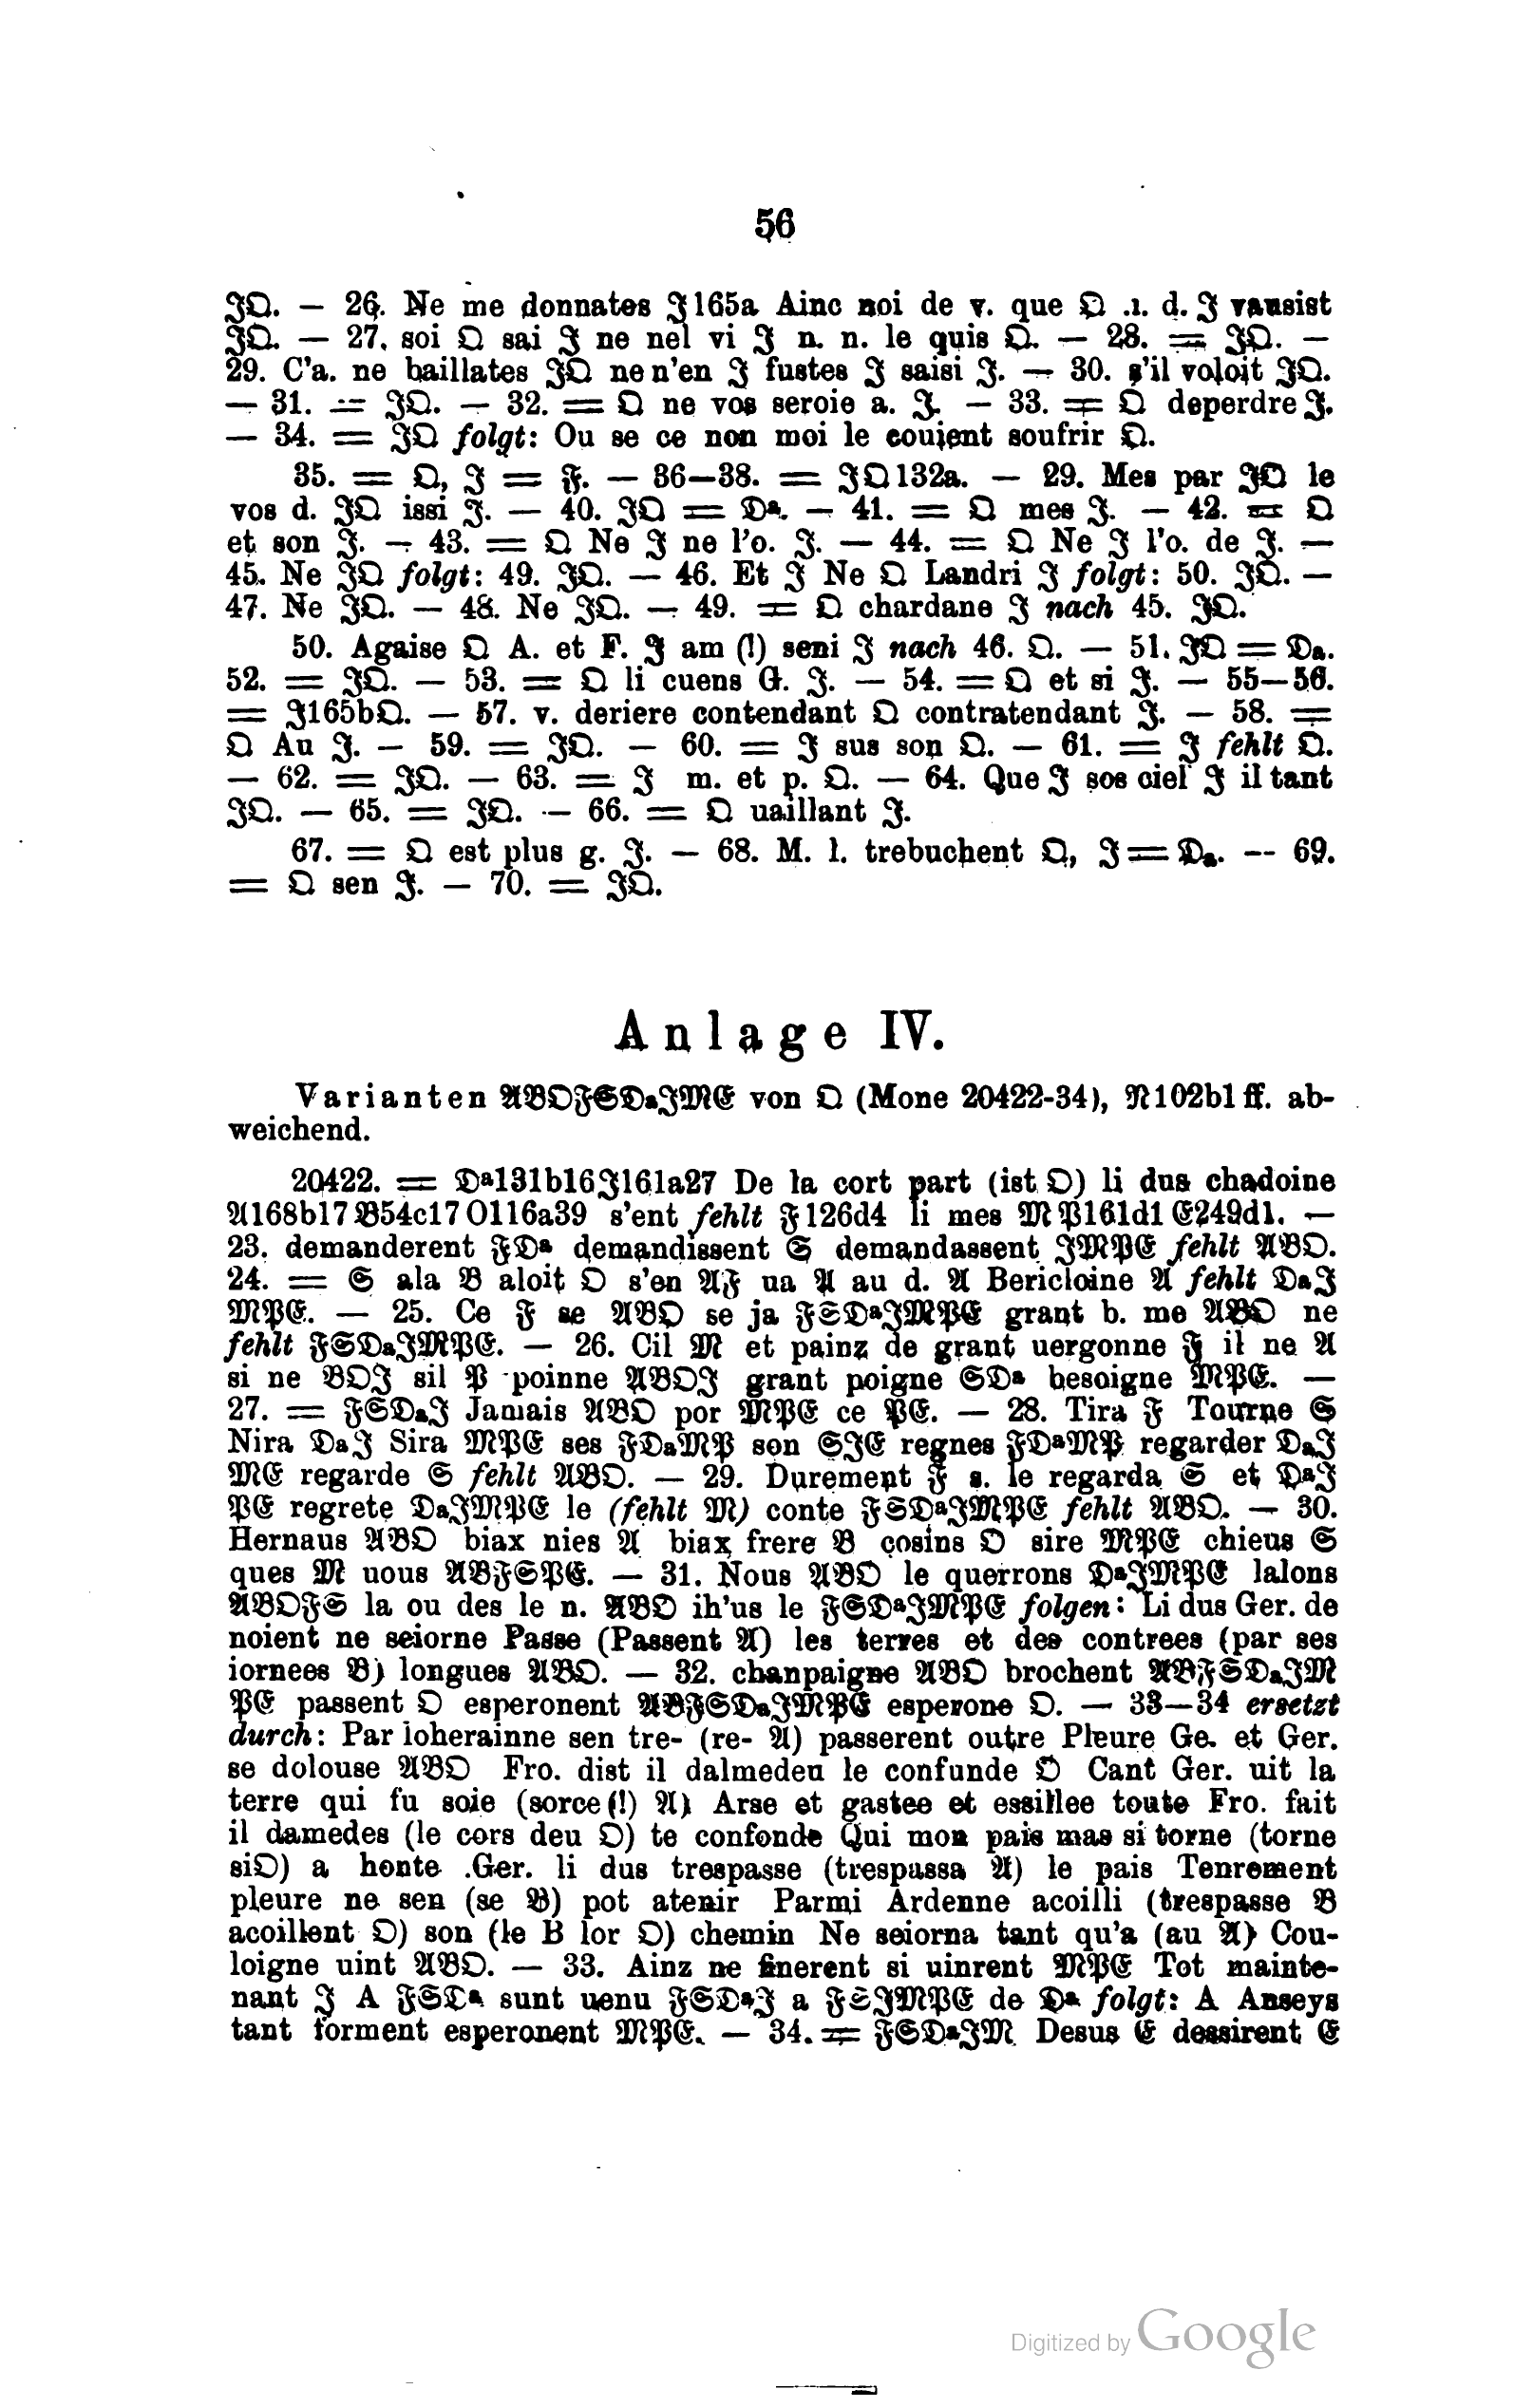 56
𝔍𝔔. — 26. Ne me donnates 𝔍165a Ainc noi de v. que 𝔔 .ı. d. 𝔍 vausist
𝔍𝔔. — 27. soi 𝔔 sai 𝔍 ne nel vi 𝔍 n. n. le quis 𝔔. — 28. = 𝔍𝔔. —
29. C'a. ne baillates 𝔍𝔔 ne n'en 𝔍 fustes 𝔍 saisi 𝔍. — 30. s'il voloit 𝔍𝔔.
— 31. = 𝔍𝔔. — 32. = 𝔔 ne vos seroie a. 𝔍. — 33. = 𝔔 deperdre 𝔍.
— 34. = 𝔍𝔔 folgt: Ou se ce non moi le couient soufrir 𝔔.
35. = 𝔔, 𝔍 = 𝔉. — 36—38. = 𝔍𝔔132a. — 29. Mes par 𝔍𝔔 le
vos d. 𝔍𝔔 issi 𝔍. — 40. 𝔍𝔔 = 𝔇a. — 41. = 𝔔 mes 𝔍. — 42. = 𝔔
et son 𝔍. — 43. = 𝔔 Ne 𝔍 ne l'o. 𝔍. — 44. = 𝔔 Ne 𝔍 l'o. de 𝔍. —
45. Ne 𝔍𝔔 folgt: 49. 𝔍𝔔. — 46. Et 𝔍 Ne 𝔔 Landri 𝔍 folgt: 50. 𝔍𝔔. —
47. Ne 𝔍𝔔. — 48. Ne 𝔍𝔔. — 49. = 𝔔 chardane 𝔍 nach 45. 𝔍𝔔.
50. Agaise 𝔔 A. et F. 𝔍 am (!) seni 𝔍 nach 46. 𝔔. — 51. 𝔍𝔔 = 𝔇a.
52. = 𝔍𝔔. — 53. = 𝔔 li cuens G. 𝔍. — 54. = 𝔔 et si 𝔍. — 55—56.
= 𝔍165b𝔔. — 57. v. deriere contendant 𝔔 contratendant 𝔍. — 58. =
𝔔 Au 𝔍. — 59. = 𝔍𝔔. — 60. = 𝔍 sus son 𝔔. — 61. = 𝔍 fehlt 𝔔.
— 62. = 𝔍𝔔. — 63. = 𝔍 m. et p. 𝔔. — 64. Que 𝔍 sos ciel 𝔍 il tant
𝔍𝔔. — 65. = 𝔍𝔔. — 66. = 𝔔 uaillant 𝔍.
67. = 𝔔 est plus g. 𝔍. — 68. M. l. trebuchent 𝔔, 𝔍 = 𝔇a. -- 69.
= 𝔔 sen 𝔍. — 70. = 𝔍𝔔.
Anlage IV.
Varianten 𝔄𝔅𝔒𝔉𝔖𝔇a𝔍𝔐𝔈 von 𝔔 (Mone 20422-34), 𝔑102b1 ff. ab-
weichend.
20422. = 𝔇a131b16𝔍161a27 De la cort part (ist 𝔒) li dus chadoine
𝔄168b17𝔅54c17 O116a39 s'ent fehlt 𝔉126d4 li mes 𝔐𝔓161d1 𝔈249d1. —
23. demanderent 𝔉𝔇a demandissent 𝔖 demandassent 𝔍𝔐𝔓𝔈 fehlt 𝔄𝔅𝔒.
24. = 𝔖 ala 𝔅 aloit 𝔒 s'en 𝔄𝔉 ua 𝔄 au d. 𝔄 Bericloine 𝔄 fehlt 𝔇a𝔍
𝔐𝔓𝔈. — 25. Ce 𝔉 se 𝔄𝔅𝔒 se ja 𝔉𝔖𝔇a𝔍𝔐𝔓𝔈 grant b. me 𝔄𝔅𝔒 ne
fehlt 𝔉𝔖𝔇a𝔍𝔐𝔓𝔈. — 26. Cil 𝔐 et painz de grant uergonne 𝔉 il ne 𝔄
si ne 𝔅𝔒𝔍 sil 𝔓 poinne 𝔄𝔅𝔒𝔍 grant poigne 𝔖𝔇a besoigne 𝔐𝔓𝔈. —
27. = 𝔉𝔖𝔇a𝔍 Jamais 𝔄𝔅𝔒 por 𝔐𝔓𝔈 ce 𝔓𝔈. — 28. Tira 𝔉 Tourne 𝔖
Nira 𝔇a𝔍 Sira 𝔐𝔓𝔈 ses 𝔉𝔇a𝔐𝔓 son 𝔖𝔍𝔈 regnes 𝔉𝔇a𝔐𝔓 regarder 𝔇a𝔍
𝔐𝔈 regarde 𝔖 fehlt 𝔄𝔅𝔒. — 29. Durement 𝔉 s. le regarda 𝔖 et 𝔇a𝔍
𝔓𝔈 regrete 𝔇a𝔍𝔐𝔓𝔈 le (fehlt 𝔐) conte 𝔉𝔖𝔇a𝔍𝔐𝔓𝔈 fehlt 𝔄𝔅𝔒. — 30.
Hernaus 𝔄𝔅𝔒 biax nies 𝔄 biax frere 𝔅 cosins 𝔒 sire 𝔐𝔓𝔈 chieus 𝔖
ques 𝔐 uous 𝔄𝔅𝔉𝔖𝔓𝔈. — 31. Nous 𝔄𝔅𝔒 le querrons 𝔇a𝔍𝔐𝔓𝔈 lalons
𝔄𝔅𝔒𝔉𝔖 la ou des le n. 𝔄𝔅𝔒 ih'us le 𝔉𝔖𝔇a𝔍𝔐𝔓𝔈 folgen: Li dus Ger. de
noient ne seiorne Passe (Passent 𝔄) les terres et des contrees (par ses
iornees 𝔅) longues 𝔄𝔅𝔒. — 32. chanpaigne 𝔄𝔅𝔒 brochent 𝔄𝔅𝔉𝔖𝔇a𝔍𝔐
𝔓𝔈 passent 𝔒 esperonent 𝔄𝔅𝔉𝔖𝔇a𝔍𝔐𝔓𝔈 esperone 𝔒. — 33—34 ersetzt
durch: Par loherainne sen tre- (re- 𝔄) passerent outre Pleure Ge. et Ger.
se dolouse 𝔄𝔅𝔒 Fro. dist il dalmedeu le confunde 𝔒 Cant Ger. uit la
terre qui fu soie (sorce (!) 𝔄) Arse et gastee et essillee toute Fro. fait
il damedes (le cors deu 𝔒) te confonde Qui mon pais mas si torne (torne
si𝔒) a honte .Ger. li dus trespasse (trespassa 𝔄) le pais Tenrement
pleure ne sen (se 𝔅) pot atenir Parmi Ardenne acoilli (trespasse 𝔅
acoillent 𝔒) son (le B lor 𝔒) chemin Ne seiorna tant qu'a (au 𝔄) Cou-
loigne uint 𝔄𝔅𝔒. — 33. Ainz ne finerent si uinrent 𝔐𝔓𝔈 Tot mainte-
nant 𝔍 A 𝔉𝔖𝔇a sunt uenu 𝔉𝔖𝔇a𝔍 a 𝔉𝔖𝔍𝔐𝔓𝔈 de 𝔇a folgt: A Anseys
tant forment esperonent 𝔐𝔓𝔈. — 34. = 𝔉𝔖𝔇a𝔍𝔐 Desus 𝔈 dessirent 𝔈
Digitized by Google